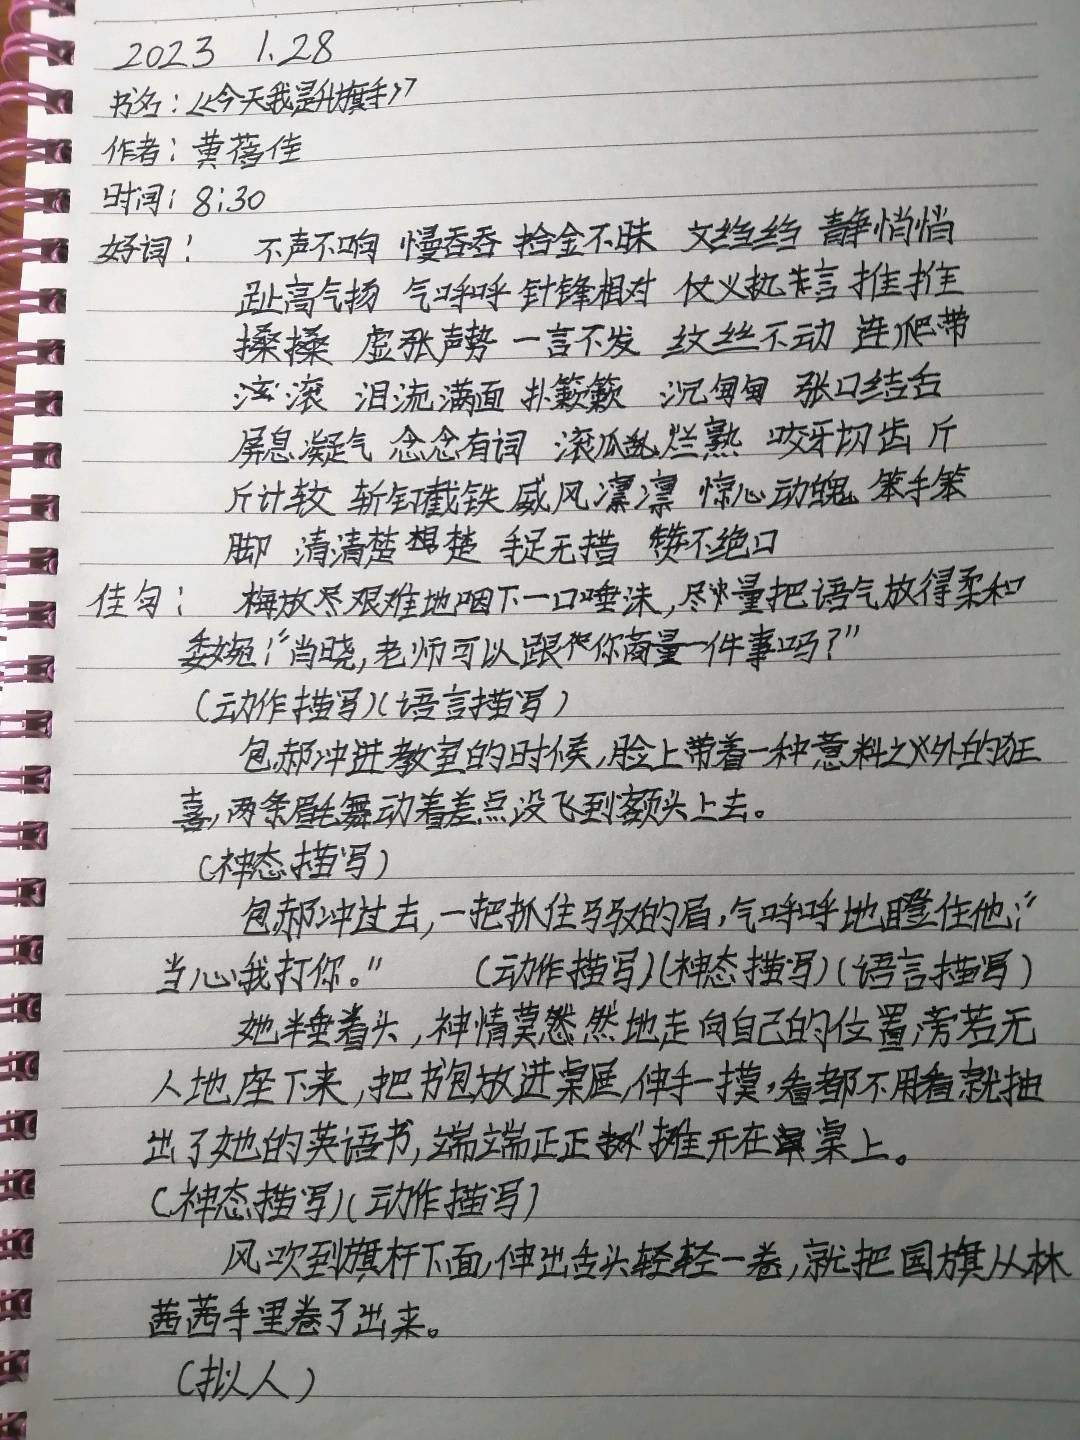 2023 1.28
书名：《今天我是升旗手》
作者：黄蓓佳
时间：8:30
好词： 不声不响 慢吞吞 拾金不昧 文绉绉 静悄悄
趾高气扬 气呼呼 针锋相对 仗义执言 推推
搡搡 虚张声势 一言不发 纹丝不动 连爬带
滚 泪流满面 扑簌簌 沉甸甸 张口结舌
屏息凝气 念念有词 滚瓜烂熟 咬牙切齿 斤
斤计较 斩钉截铁 威风凛凛 惊心动魄 笨手笨
脚 清清楚楚 手足无措 赞不绝口
佳句： 梅放尽艰难地咽下一口唾沫，尽量把语气放得柔和
委婉：“肖晓，老师可以跟你商量一件事吗？”
（动作描写）（语言描写）
包郝冲进教室的时候，脸上带着一种意料之外的狂
喜，两条眉毛舞动着差点没飞到额头上去。
（神态描写）
包郝冲过去，一把抓住马驭的肩，气呼呼地瞪住他：“
当心我打你。” （动作描写）（神态描写）（语言描写）
她半垂着头，神情莫然地走向自己的位置，旁若无
人地座下来，把书包放进桌屉，伸手一摸，看都不用看就抽
出了她的英语书，端端正正摊开在桌上。
（神态描写）（动作描写）
风吹到旗杆下面，伸出舌头轻轻一卷，就把国旗从林
茜茜手里卷了出来。
（拟人）